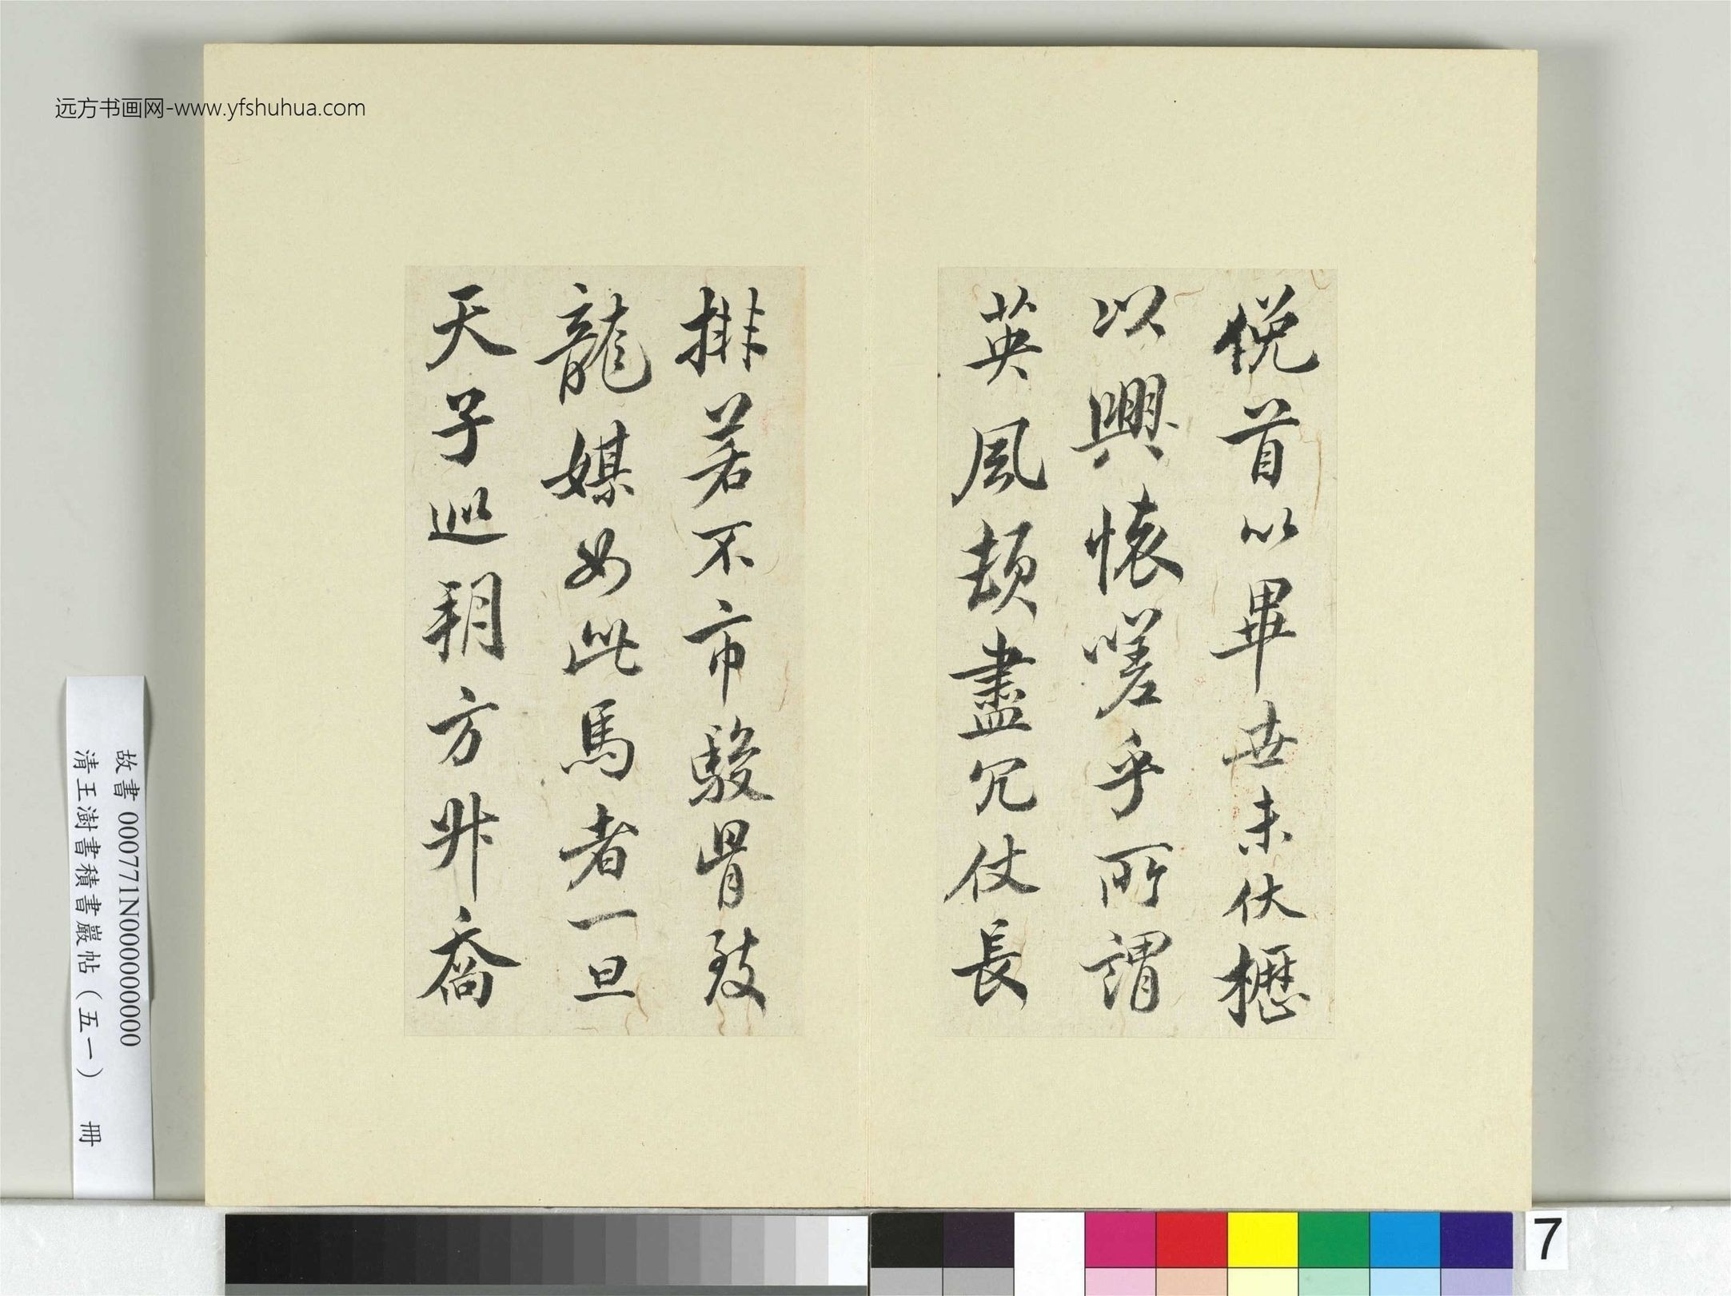 远方书画网-www.yfshuhua.com
俛首以畢世未伏櫪
以興懷嗟乎所謂
英風頓盡冗仗長
排若不市駿骨致
龍媒如此馬者一旦
天子巡朔方升喬
故書 000771N000000000
清王澍書積書巖帖(五一) 冊
7